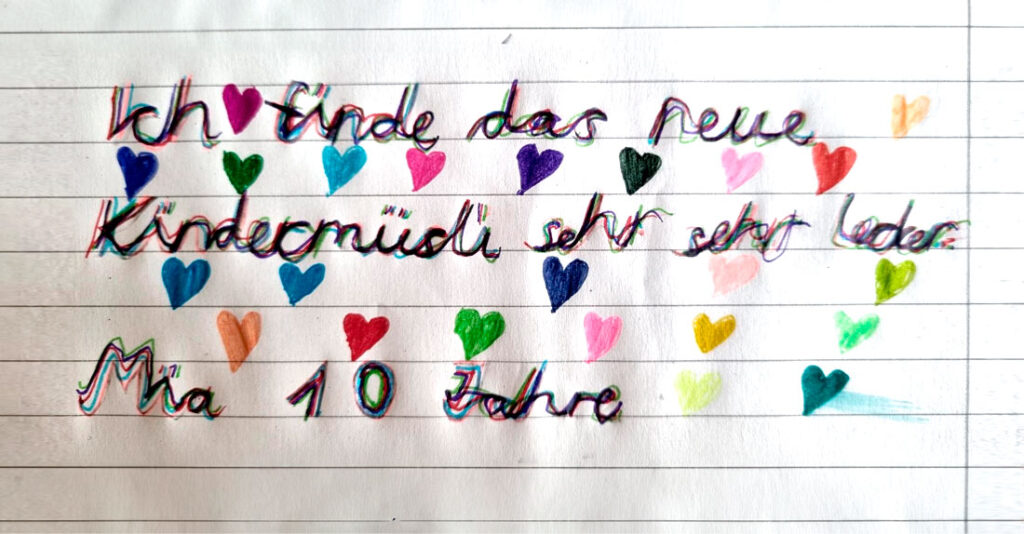 Ich finde das neue
Kindermüsli sehr sehr leder.
Mia 10 Jahre